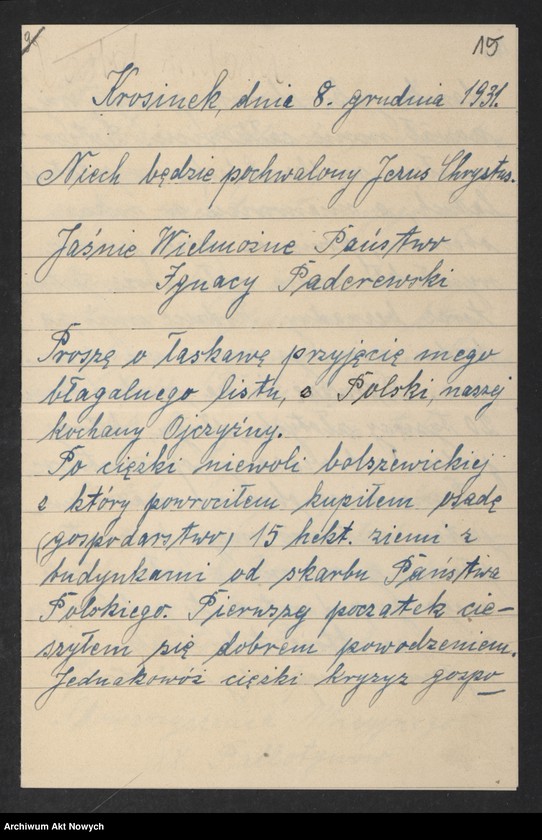 15
Krosinek, dnia 8. grudnia 1931.
Niech będzie pochwalony Jezus Chrystus.
Jaśnie Wielmożne Państwo
Ignacy Paderewski
Proszę o łaskawę przyjęcię mego
błagalnego listu, z Polski, naszej
kochany Ojczyźny.
Po cięźki niewoli bolszewickiej
z który powrociłem kupiłem osadę
(gospodarstwo) 15 hekt. ziemi z
budynkami od skarbu Państwa
Polskiego. Pierwszę początek cie-
szyłem się dobrem powodzeniem.
Jednakowóż cięźki kryzyz gospo-
Archiwum Akt Nowych